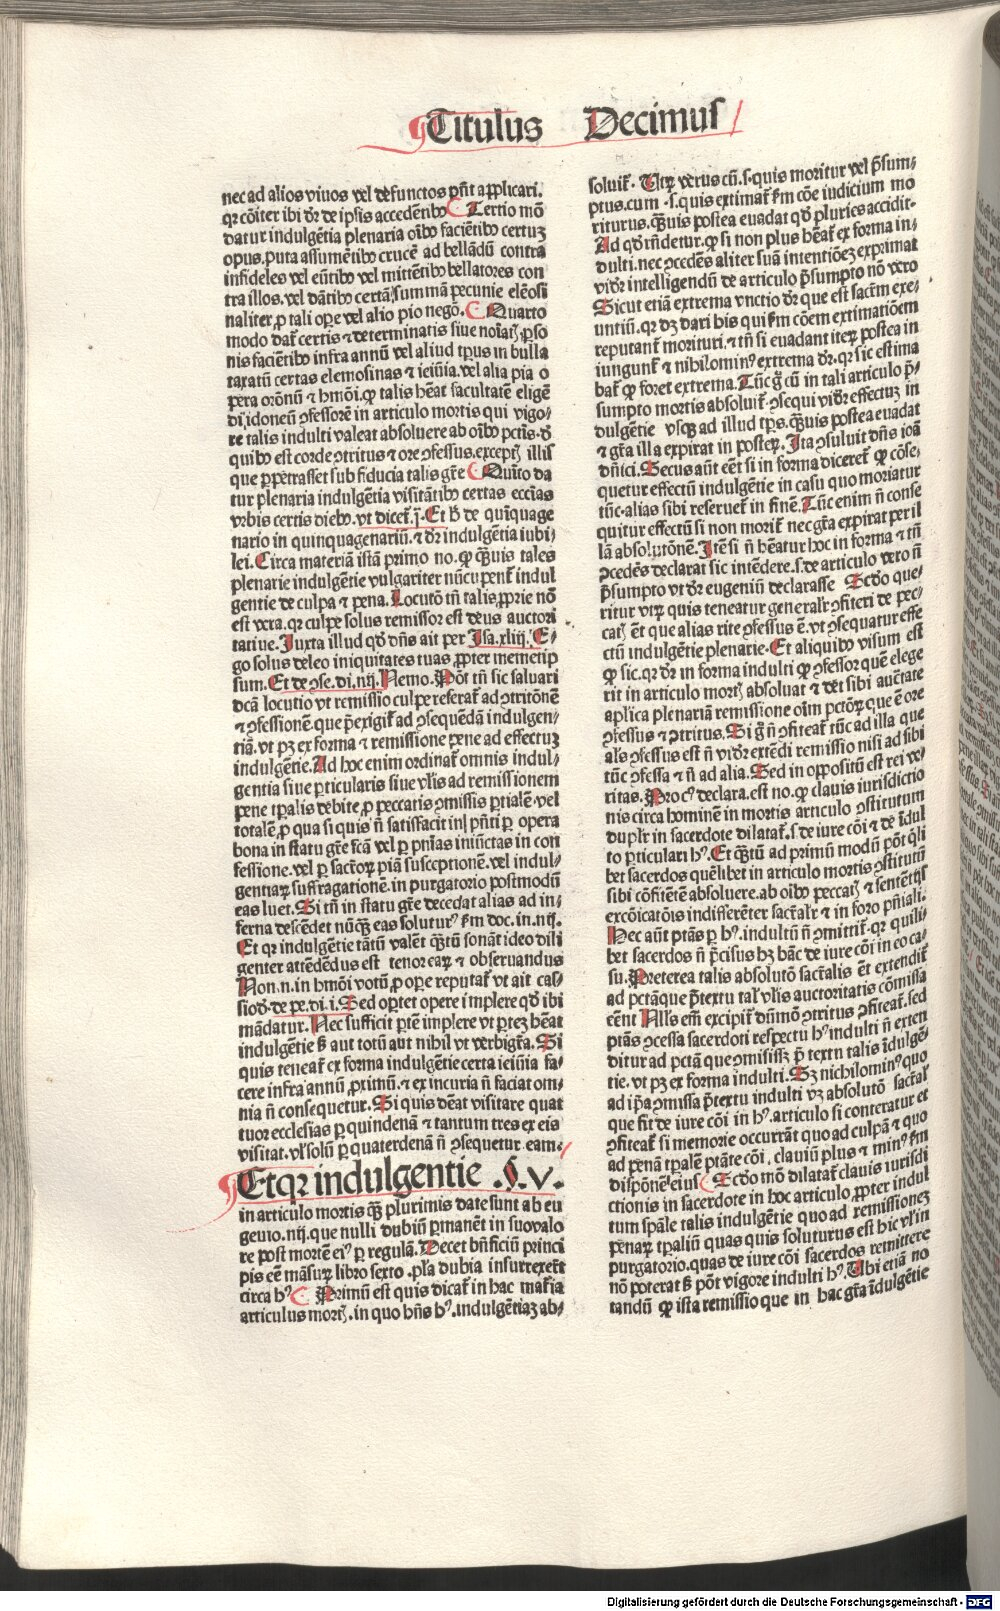 Titulus Decimus
nec ad alios viuos vel defunctos pn̄t applicari.
qr cōiter ibi dr̄ de ipsis accedētibꝰ Tertio mō
datur indulgētia plenaria oībꝰ faciētibꝰ certuꝫ
opus. puta assumētibꝰ crucē ad bellādū contra
infideles vel eūtibꝰ vel mittētibꝰ bellatores con
tra illos. vel dātibꝰ certā summā pecunie elēosi
naliter, ꝓ tali oꝑe vel alio pio negō. Quarto
modo dat̄ certis ⁊ determinatis siue noīatꝭ ꝑso
nis faciētibꝰ infra annū vel aliud tꝑus in bulla
taxatū certas elemosinas ⁊ ieiūia. vel alia pia o
pera orōnū ⁊ hmōi. ꝙ talis hēat facultatē eligē
di idoneū ꝯfessorē in articulo mortis qui vigo⸗
re talis indulti valeat absoluere ab oībꝰ pctīs. d̄
quibꝰ est corde ꝯtritus ⁊ ore ꝯfessus. exceptꝭ illis
que ꝑpetrasset sub fiducia talis gr̄e Quīto da
tur plenaria indulgētia visitātibꝰ certas eccīas
vrbis certis diebꝰ. vt dicet̄. j. Et ꝟ de quīquage
nario in quinquagenariū. ⁊ dr̄ indulgētia iubi⸗
lei. Circa materiā istā primo no. ꝙ quis tales
plenarie indulgētie vulgariter nūcupent̄ indul
gentie de culpa ⁊ pena. Locutō tn̄ talis ꝓprie nō
est vera. qr culpe solus remissor est deus auctori
tatiue. Iuxta illud qd̄ dn̄s ait per Isa. xliij. E⸗
go solus deleo iniquitates tuas ꝓpter memetip
sum. Et de ꝯse. di. iiij. Nemo. Pōt tn̄ sic saluari
dcā locutio vt remissio culpe referat̄ ad ꝯtritōnē
⁊ ꝯfessionē. que p̄exigit̄ ad ꝯsequēdā indulgen⸗
tiā. vt pꝫ ex forma ⁊ remissione pene ad effectuꝫ
indulgētie. Ad hoc enim ordinat̄ omnis indul⸗
gentia siue ꝑticularis siue vl̄is ad remissionem
pene tꝑalis debite ꝓ peccatis ꝯmissis ꝑtialē. vel
totalē, ꝓ qua si quis n̄ satisfacit in pn̄ti ꝑ opera
bona in statu gr̄e fcā vel ꝑ pn̄ias iniūctas in con
fessione. vel ꝑ sactoꝝ piā susceptionē. vel indul⸗
gentiaꝝ suffragationē. in purgatorio postmodū
eas luet. Si tn̄ in statu gr̄e decedat alias ad in⸗
ferna descēdet nūꝙ eas soluturꝰ ẜm doc. in. iiij.
Et qr indulgētie tātū valēt ꝙtū sonāt ideo dili
genter attēdēdus est tenor earꝝ ⁊ obseruandus
Non. n. in hmōi votū ꝓ oꝑe reputat̄ vt ait cas⸗
siod̄. de pe. di. i. Sed oꝑtet opere implere qd̄ ibi
mādatur. Nec sufficit ꝑtē implere vt ꝑteꝫ hēat
indulgētie ẜ aut totū aut nihil vt verbi gr̄a. Si
quis teneat̄ ex forma indulgētie certa ieiūia fa⸗
cere infra annū ꝓximū. ⁊ ex incuria n̄ faciat om⸗
nia n̄ consequetur. Si quis dēat visitare quat
tuor ecclesias ꝑ quindenā ⁊ tantum tres ex eis
visitat. vl̄ solū ꝑ quaterdenā n̄ ꝯsequetur eam.
Et qr indulgentie .§.v.
in articulo mortis qꝫ plurimis date sunt ab eu
genio. iiij. que nulli dubiū ꝑmanēt in suo valo
re post mortē eiꝰ ꝑ regulā. Decet bn̄ficiū princi
pis eē māsuꝝ libro sexto. pl̄a dubia insurrexēt
circa hꝰ Primū est quis dicat̄ in hac mat̄ia
articulus mortꝭ. in quo hn̄s hꝰ. indulgētiaꝫ ab⸗
soluit̄. Utꝝ verus cū. s. quis moritur vel p̄sum⸗
ptus. cum .s. quis extimat̄ ẜm cōe iudicium mo
riturus. ꝙuis postea euadat qd̄ pluries accidit⸗
Ad qd̄ rn̄detur. ꝙ si non plus hēat̄ ex forma in⸗
dulti. nec ꝯcedēs aliter suā intentiōeꝫ exprimat
vidr̄ intelligendū de articulo p̄sumpto nō vero
Sicut etiā extrema vnctio dr̄ que est sacr̄m exe⸗
untiū. qr dꝫ dari his qui ẜm cōem extimatiōem
reputant̄ morituri. ⁊ tn̄ si euadant iteꝝ postea in
iungunt̄ ⁊ nihilominꝰ extrema dr̄. qr sic estima
bat̄ ꝙ foret extrema. Tūc gͦ cū in tali articulo p̄⸗
sumpto mortis absoluit̄. ꝯsequi vidr̄ effectuꝫ in
dulgētie vsqꝫ ad illud tꝑs. ꝙuis postea euadat
⁊ gr̄a illa expirat in posteꝝ. Ita ꝯsuluit dn̄s ioā
dn̄ici. Secus aūt eēt si in forma diceret̄ ꝙ cōse⸗
quetur effectū indulgētie in casu quo moriatur
tūc. alias sibi reseruet̄ in finē. Tūc enim n̄ conse
quitur effectū si non morit̄ nec gr̄a expirat per il
lā absolutōnē. Itē si n̄ hēatur hoc in forma ⁊ tn̄
ꝯcedēs declarat sic intēdere. s. de articulo vero n̄
p̄sumpto vt dr̄ eugeniū declarasse Scd̄o que⸗
ritur vtꝝ quis teneatur general̄r ꝯfiteri de pec⸗
catꝭ ēt que alias rite ꝯfessus ē. vt ꝯsequatur effe
ctū indulgētie plenarie. Et aliquibꝰ visum est
ꝙ sic. qr dr̄ in forma indulti ꝙ ꝯfessor quē elege
rit in articulo mortꝭ absoluat ⁊ det sibi auc̄tate
aplica plenariā remissione oīm pctōꝝ que ē ore
ꝯfessus ⁊ ꝯtritus. Si gͦ n̄ ꝯfiteat̄ tūc ad illa que
al̄s ꝯfessus est n̄ vidr̄ extēdi remissio nisi ad sibi
tūc ꝯfessa ⁊ n̄ ad alia. Sed in oppositū est rei ve⸗
ritas. Pro cꝰ declara. est no. ꝙ clauis iurisdictio
nis circa hominē in mortis articulo ꝯstitutum
dupl̄r in sacerdote dilatat̄. s. de iure cōi ⁊ de īdul
to ꝑticulari hꝰ. Et ꝙtū ad primū modū pōt q̄li
bet sacerdos quēlibet in articulo mortis ꝯstitutū
sibi cōfitētē absoluere. ab oībꝰ peccatꝭ ⁊ sentētijs
excōicatōis indifferēter sacr̄al̄r ⁊ in foro pn̄iali.
Nec aūt ptās ꝑ hꝰ. indultū n̄ ꝯmittit̄. qr quili⸗
bet sacerdos n̄ p̄cisus hꝫ hāc de iure cōi in eo ca⸗
su. Preterea talis absolutō sacr̄alis ēt extendit̄
ad pctāque p̄textu tal̄ vl̄is auctoritatis cōmissa
eēnt Nll's em̄ excipit̄ dūmō ꝯtritus ꝯfiteat̄. sed
ptās ꝯcessa sacerdoti respectu hꝰ indulti n̄ exten
ditur ad pctā que ꝯmisisꝫ p̄ textu talis īdulgē⸗
tie. vt pꝫ ex forma indulti. Sꝫ nichilominꝰ quo
ad ip̄a ꝯmissa p̄textu indulti vꝫ absolutō sacr̄al̄
que fit de iure cōi in hꝰ. articulo si conteratur et
ꝯfiteat̄ si memorie occurrāt quo ad culpā ⁊ quo
ad penā tꝑalē ptāte cōi. clauiū plus ⁊ minꝰ ẜm
dispōne eius Scd̄o mō dilatat̄ clauis iurisdi
ctionis in sacerdote in hoc articulo ꝓpter indul
tum spāle talis indulgētie quo ad remissioneꝫ
penaꝝ tꝑaliū quas quis soluturus est hic vl̄ in
purgatorio. quas de iure cōi sacerdos remittere
nō poterat ẜ pōt vigore indulti hꝰ. Ubi etiā no
tandū ꝙ ista remissio que in hac gr̄a īdulgētie
Digitalisierung gefördert durch die Deutsche Forschungsgemeinschaft - DFG